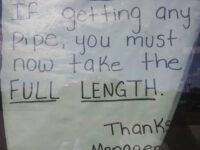 If getting any
pipe, you must
now take the
FULL LENGTH.
Thanks